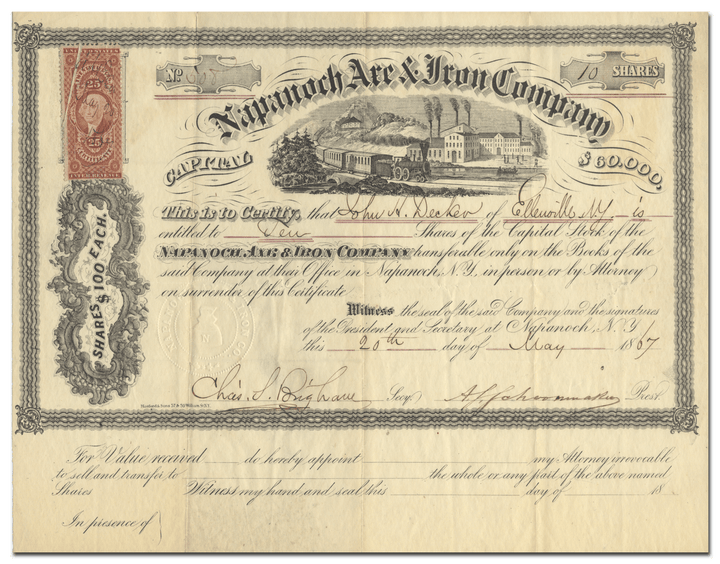 UNITED STATES
25 25
CERTIFICATE
INTER. REVENUE
No.
10 SHARES
Napanoch Axe & Iron Company,
CAPITAL $60.000,
SHARES $100 EACH.
This is to Certify, that John H. Decker of Ellenville N.Y. is
entitled to Ten Shares of the Capital Stock of the
NAPANOCH AXE & IRON COMPANY transferable only on the Books of the
said Company at their Office in Napanoch, N.Y., in person or by Attorney
on surrender of this Certificate.
Witness the seal of the said Company and the signatures
of the President and Secretary at Napanoch, N.Y.
this 20th day of May 1867
Chas. S. Brigham Secy. Prest.
For Value received do hereby appoint my Attorney irrevocable
to sell and transfer to the whole or any part of the above named
Shares Witness my hand and seal this day of 18
In presence of